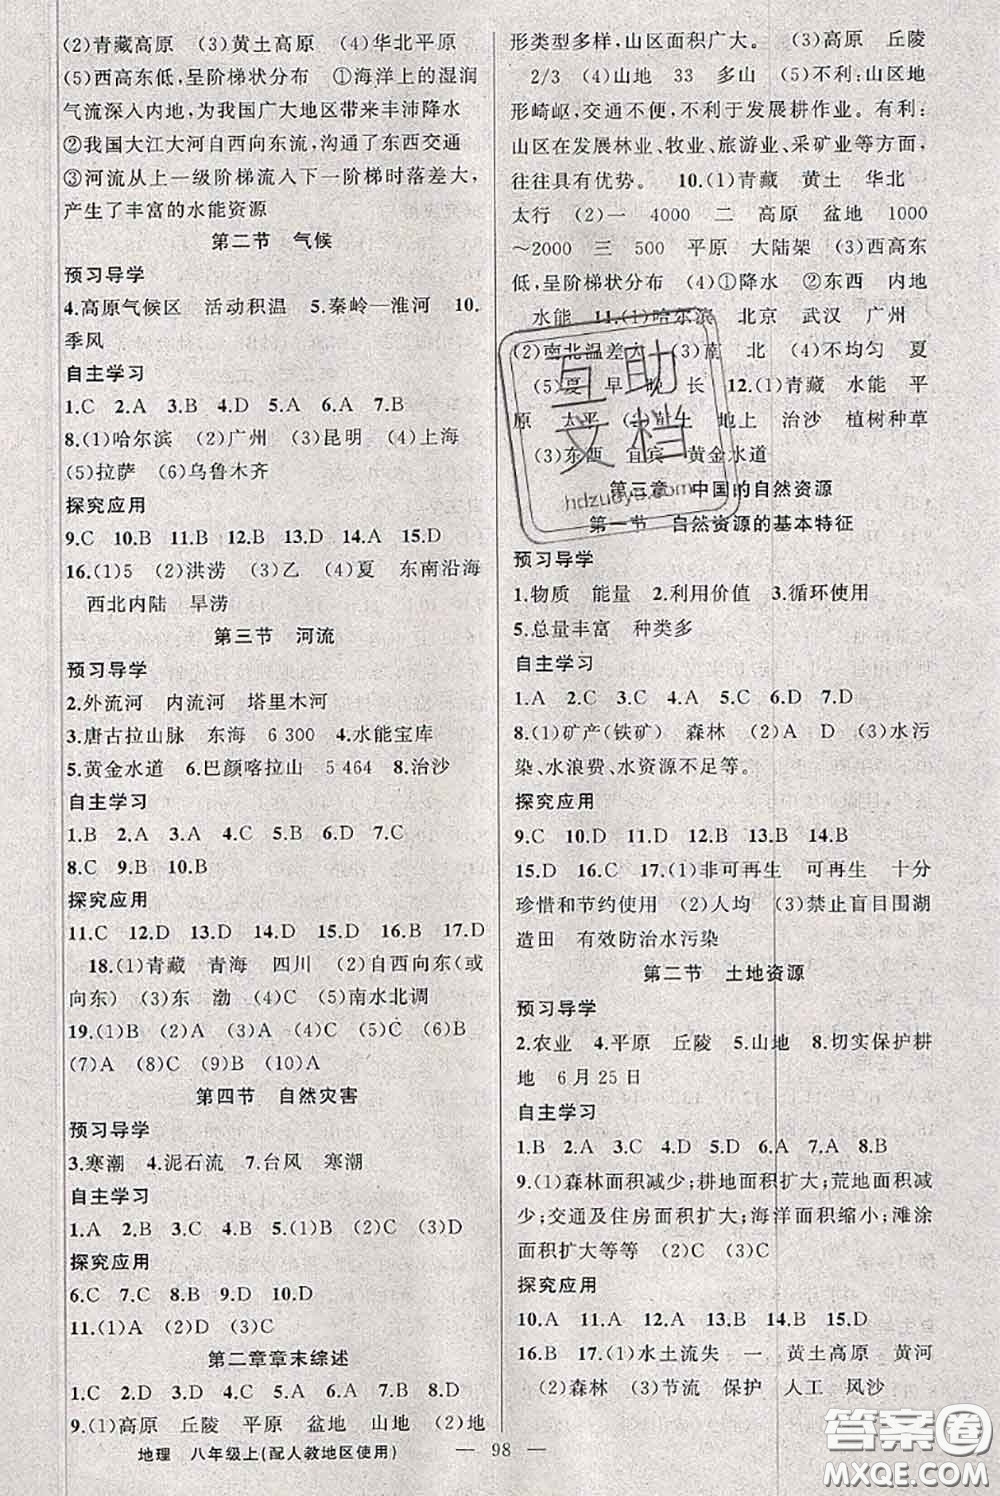 (2)青藏高原 (3)黄土高原 (4)华北平原
(5)西高东低,呈阶梯状分布 ①海洋上的湿润
气流深入内地,为我国广大地区带来丰沛降水
②我国大江大河自西向东流,沟通了东西交通
③河流从上一级阶梯流入下一阶梯时落差大,
产生了丰富的水能资源
第二节 气候
预习导学
4.高原气候区 活动积温 5.秦岭—淮河 10.
季风
自主学习
1.C 2.A 3.B 4.D 5.A 6.A 7.B
8.(1)哈尔滨 (2)广州 (3)昆明 (4)上海
(5)拉萨 (6)乌鲁木齐
探究应用
9.C 10.B 11.B 12.B 13.D 14.A 15.D
16.(1)5 (2)洪涝 (3)乙 (4)夏 东南沿海
西北内陆 旱涝
第三节 河流
预习导学
2.外流河 内流河 塔里木河
3.唐古拉山脉 东海 6 300 4.水能宝库
5.黄金水道 6.巴颜喀拉山 5 464 8.治沙
自主学习
1.B 2.A 3.A 4.C 5.B 6.D 7.C
8.C 9.B 10.B
探究应用
11.C 12.D 13.D 14.D 15.C 16.B 17.D
18.(1)青藏 青海 四川 (2)自西向东(或
向东) (3)东 渤 (4)C (5)南水北调
19.(1)B (2)A (3)A (4)C (5)C (6)B
(7)A (8)C (9)B (10)A
第四节 自然灾害
预习导学
3.寒潮 4.泥石流 7.台风 寒潮
自主学习
1.A 2.B 3.B 4.D 5.(1)B (2)C (3)D
探究应用
6.C 7.C 8.D 9.D 10.D
11.(1)A (2)D (3)C
第二章章末综述
1.C 2.D 3.B 4.C 5.A 6.D 7.B 8.D
9.(1)高原 丘陵 平原 盆地 山地 (2)地
形类型多样,山区面积广大。 (3)高原 丘陵
2/3 (4)山地 33 多山 (5)不利:山区地
形崎岖,交通不便,不利于发展耕作业。有利:
山区在发展林业、牧业、旅游业、采矿业等方面,
往往具有优势。 10.(1)青藏 黄土 华北
太行 (2)一 4000 二 高原 盆地 1000
~2000 三 500 平原 大陆架 (3)西高东
低,呈阶梯状分布 (4)①降水 ②东西 内地
水能 11.(1)哈尔滨 北京 武汉 广州
(2)南北温差大 (3)南 北 (4)不均匀 夏
(5)夏 早 晚 长 12.(1)青藏 水能 平
原 太平 (2)黄土 地上 治沙 植树种草
(3)东西 宜宾 黄金水道
第三章 中国的自然资源
第一节 自然资源的基本特征
预习导学
1.物质 能量 2.利用价值 3.循环使用
5.总量丰富 种类多
自主学习
1.A 2.C 3.C 4.A 5.C 6.D 7.D
8.(1)矿产(铁矿) 森林 (2)A D (3)水污
染、水浪费、水资源不足等。
探究应用
9.C 10.D 11.D 12.B 13.B 14.B
15.D 16.C 17.(1)非可再生 可再生 十分
珍惜和节约使用 (2)人均 (3)禁止盲目围湖
造田 有效防治水污染
第二节 土地资源
预习导学
2.农业 4.平原 丘陵 5.山地 8.切实保护耕
地 6月25日
自主学习
1.B 2.A 3.C 4.B 5.D 6.A 7.A 8.B
9.(1)森林面积减少;耕地面积扩大;荒地面积减
少;交通及住房面积扩大;海洋面积缩小;滩涂
面积扩大等等 (2)C (3)C
探究应用
10.A 11.A 12.D 13.B 14.B 15.D
16.B 17.(1)水土流失 一 黄土高原 黄河
(2)森林 (3)节流 保护 人工 风沙
地理 八年级上(配人教地区使用) — 98 —
互助
文档
hdzuoye.com
答案圈
MXQE.COM